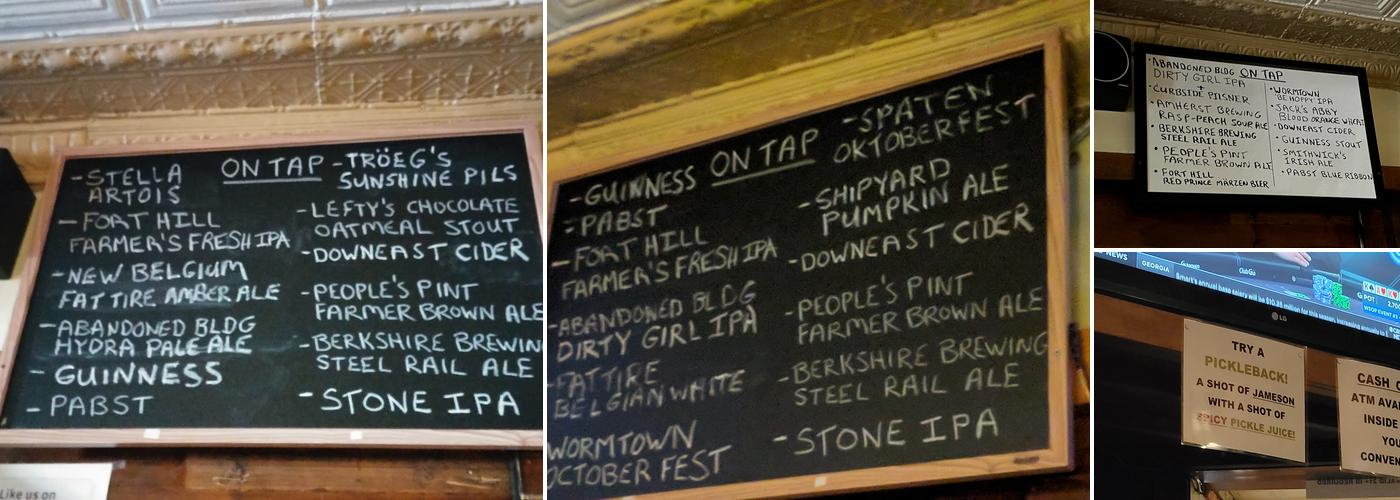 ON TAP
-STELLA
ARTOIS
-FORT HILL
FARMER'S FRESH IPA
-NEW BELGIUM
FAT TIRE AMBER ALE
-ABANDONED BLDG
HYDRA PALE ALE
-GUINNESS
-PABST
-TRÖEG'S
SUNSHINE PILS
-LEFTY'S CHOCOLATE
OATMEAL STOUT
-DOWNEAST CIDER
-PEOPLE'S PINT
FARMER BROWN ALE
-BERKSHIRE BREWING
STEEL RAIL ALE
-STONE IPA
Like us on
ON TAP
-GUINNESS
-PABST
-FORT HILL
FARMER'S FRESH IPA
-ABANDONED BLDG
DIRTY GIRL IPA
-FAT TIRE
BELGIAN WHITE
WORMTOWN
OCTOBER FEST
-SPATEN
OKTOBERFEST
-SHIPYARD
PUMPKIN ALE
-DOWNEAST CIDER
-PEOPLE'S PINT
FARMER BROWN ALE
-BERKSHIRE BREWING
STEEL RAIL ALE
-STONE IPA
ON TAP
•ABANDONED BLDG
DIRTY GIRL IPA
•CURBSIDE PILSNER
•AMHERST BREWING
RASP-PEACH SOUR ALE
•BERKSHIRE BREWING
STEEL RAIL ALE
•PEOPLE'S PINT
FARMER BROWN ALE
•FORT HILL
RED PRINCE MÄRZEN BIER
•WORMTOWN
"BE HOPPY" IPA
•JACK'S ABBY
BLOOD ORANGE WHEAT
•DOWNEAST CIDER
•GUINNESS STOUT
•SMITHWICK'S
IRISH ALE
•PABST BLUE RIBBON
NEWS
GEORGIA
annual base salary will be $10.35 million for this season, increasing annually to
POT
WSOP EVENT
LG
TRY A
PICKLEBACK!
A SHOT OF JAMESON
WITH A SHOT OF
SPICY PICKLE JUICE!
CASH
ATM AVAI
INSIDE
YOU
CONVEN